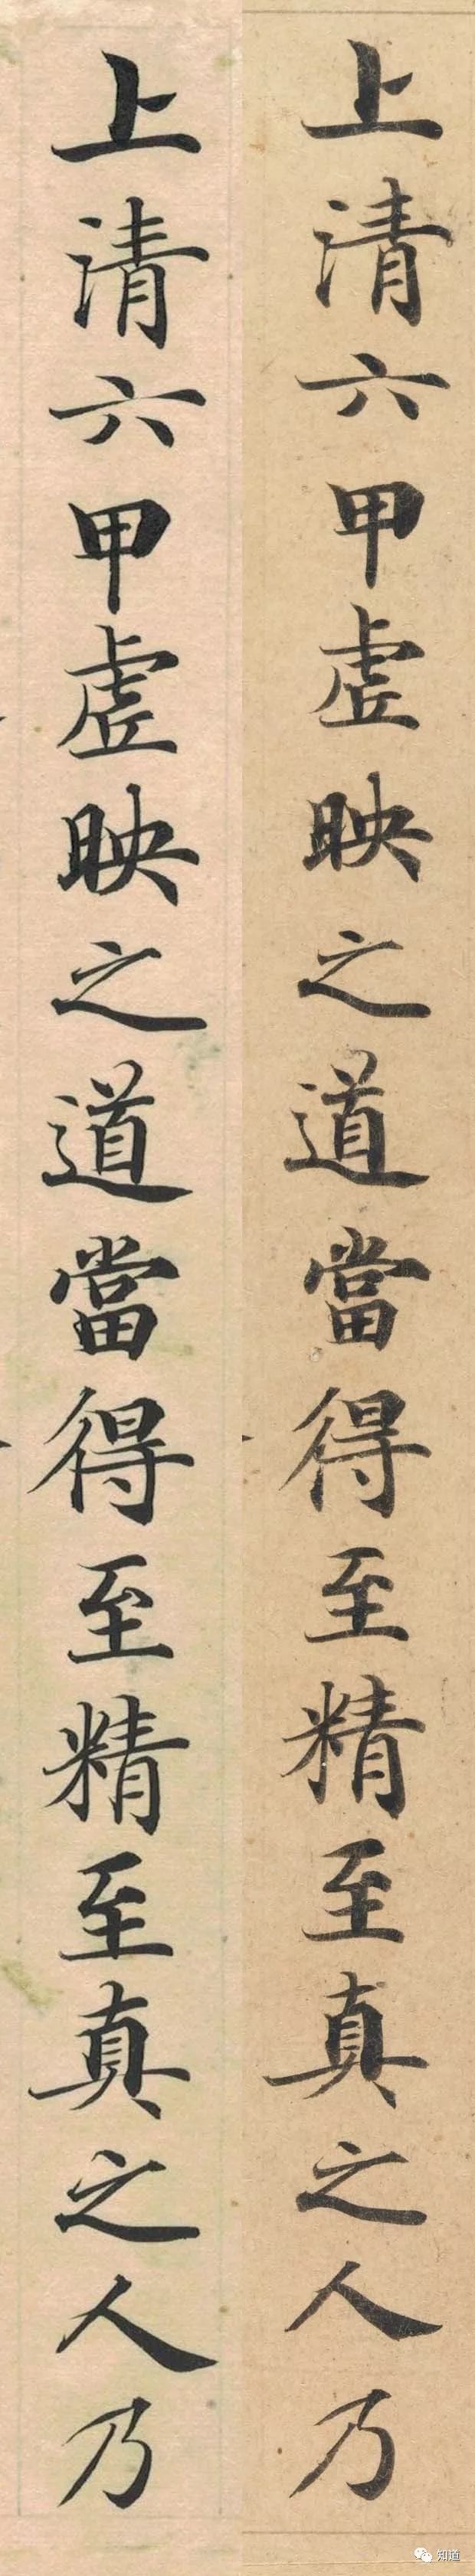 上清六甲虚映之道當得至精至真之人乃
上清六甲虚映之道當得至精至真之人乃
知道